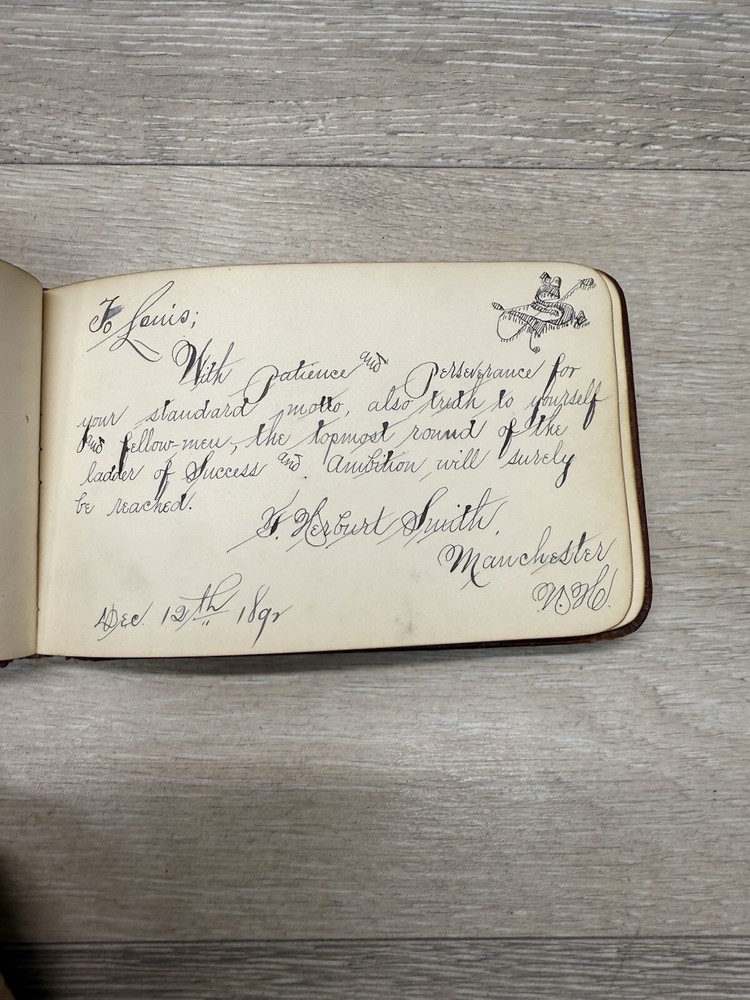 To Louis;
With patience and Perseverance for
your standard motto, also truth to yourself
and fellow-men, the topmost round of the
ladder of Success and Ambition will surely
be reached.
F. Herburt Smith.
Manchester
N.H.
Dec. 12th 1892